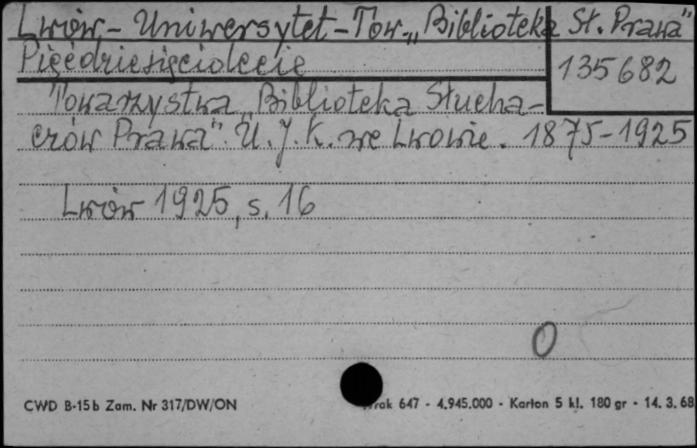 Lwów - Uniwersytet - Tow. „Biblioteka Sł. Prawa"
Pięćdziesięciolecie
135682
Towarzystwa „Biblioteka Słucha-
czów Prawa". U. J. K. we Lwowie. 1875-1925
Lwów 1925, s. 16
0
CWD B-15b Zam. Nr 317/DW/ON
647 - 4.945.000 - Karton 5 kl. 180 gr - 14. 3. 68